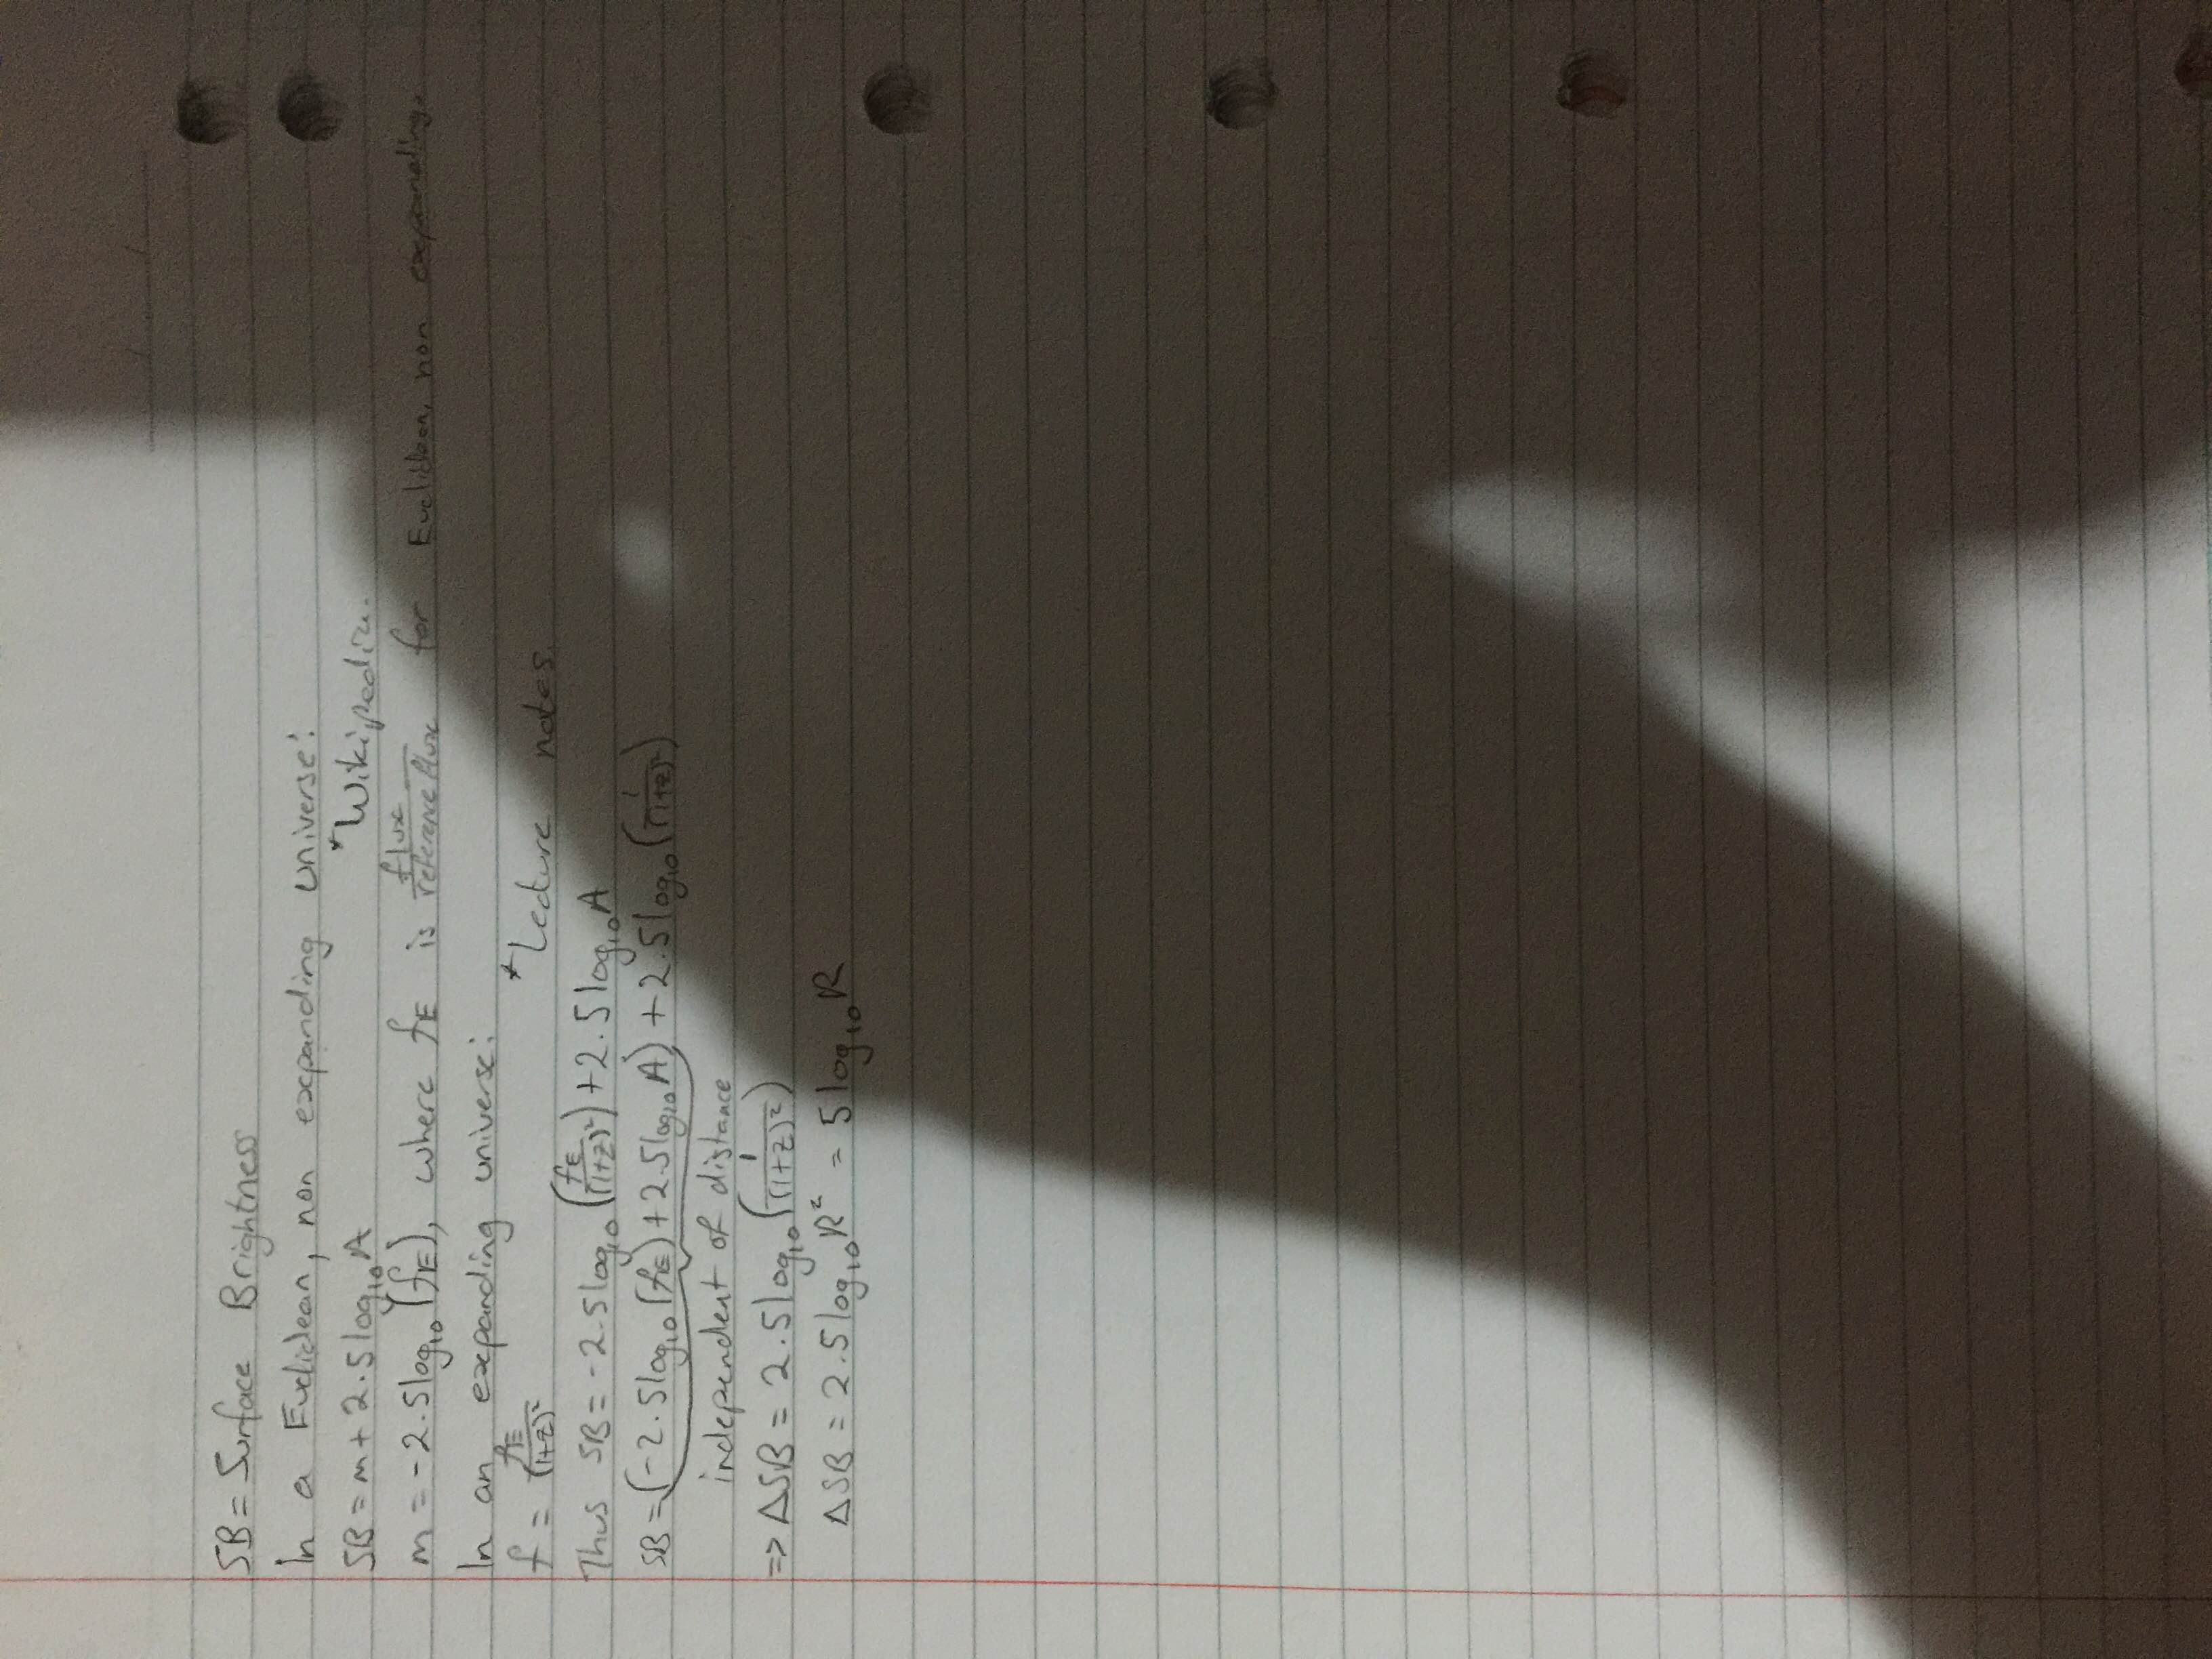 SB = Surface Brightness
In a Euclidean, non expanding universe:
SB = m + 2.5log₁₀A *Wikipedia.
m = -2.5log₁₀(f_E), where f_E is flux/reference flux for Euclidean, non expanding.
In an expanding universe:
f = f_E/(1+z)² *Lecture notes.
Thus SB = -2.5log₁₀(f_E/(1+z)²) + 2.5log₁₀A
SB = (-2.5log₁₀(f_E) + 2.5log₁₀A) + 2.5log₁₀(1/(1+z)²)
independent of distance
=> ΔSB = 2.5log₁₀(1/(1+z)²)
ΔSB = 2.5log₁₀R² = 5log₁₀R